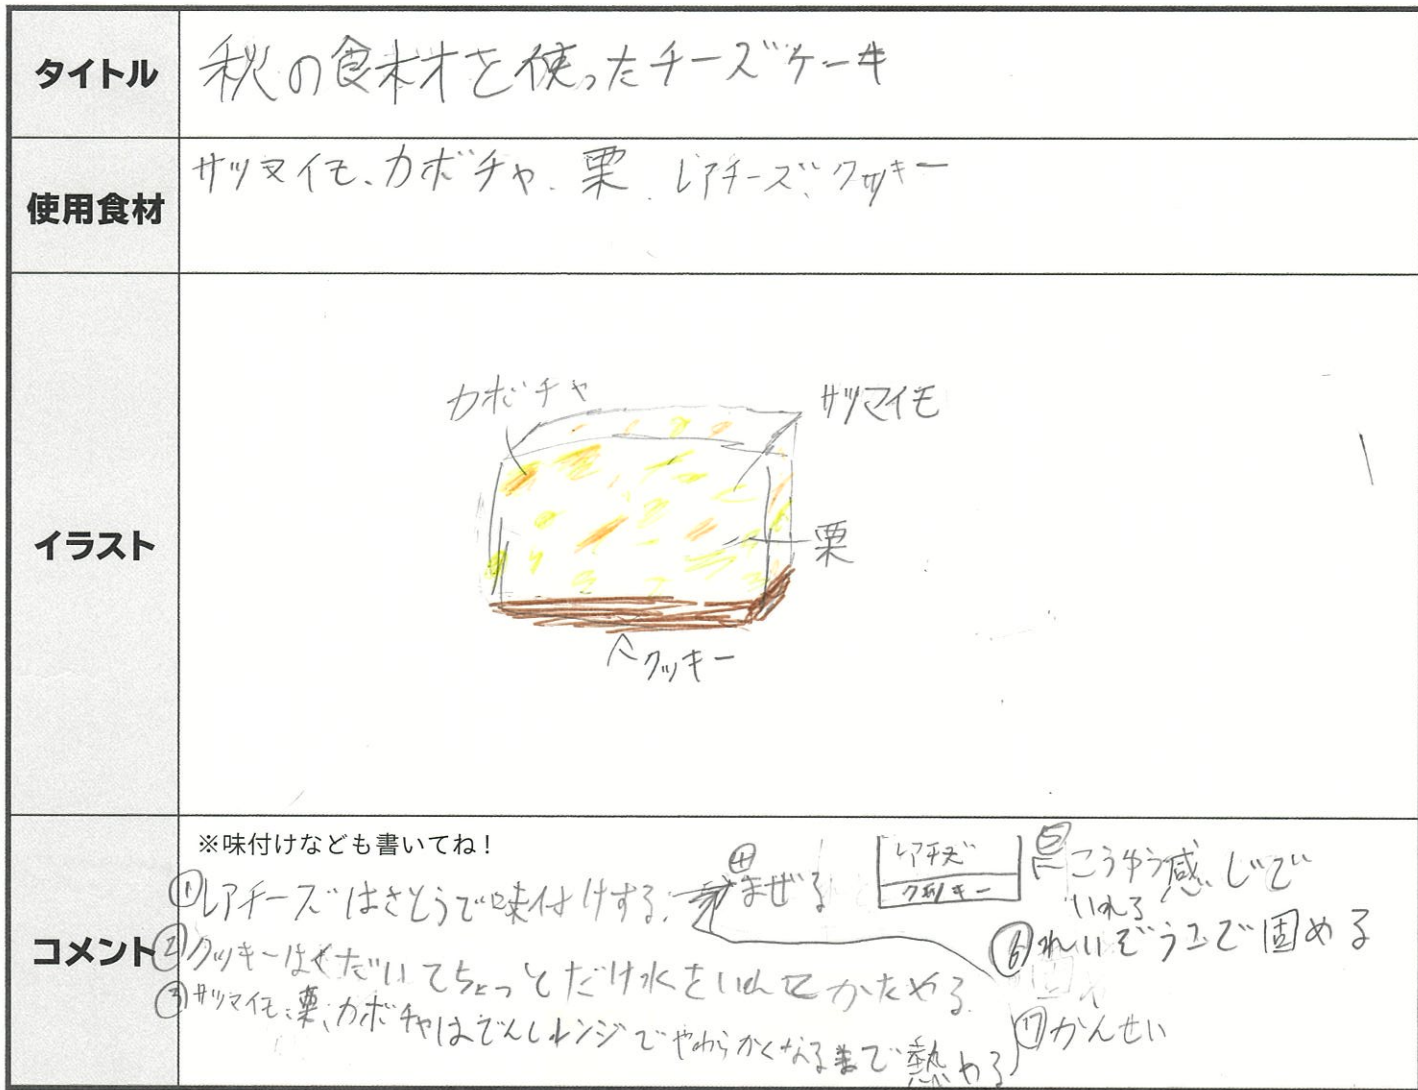 タイトル
秋の食材を使ったチーズケーキ
使用食材
サツマイモ、カボチャ、栗、レアチーズ、クッキー
イラスト
カボチャ
サツマイモ
栗
クッキー
コメント
※味付けなども書いてね!
①レアチーズはさとうで味付けする。
④まぜる
レアチーズ
クッキー
⑤こうゆう感じで
いれる
②クッキーはくだいてちょっとだけ水をいれてかためる
⑥れいぞうこで固める
③サツマイモ、栗、カボチャはでんしレンジでやわらかくなるまで熱める
⑦かんせい